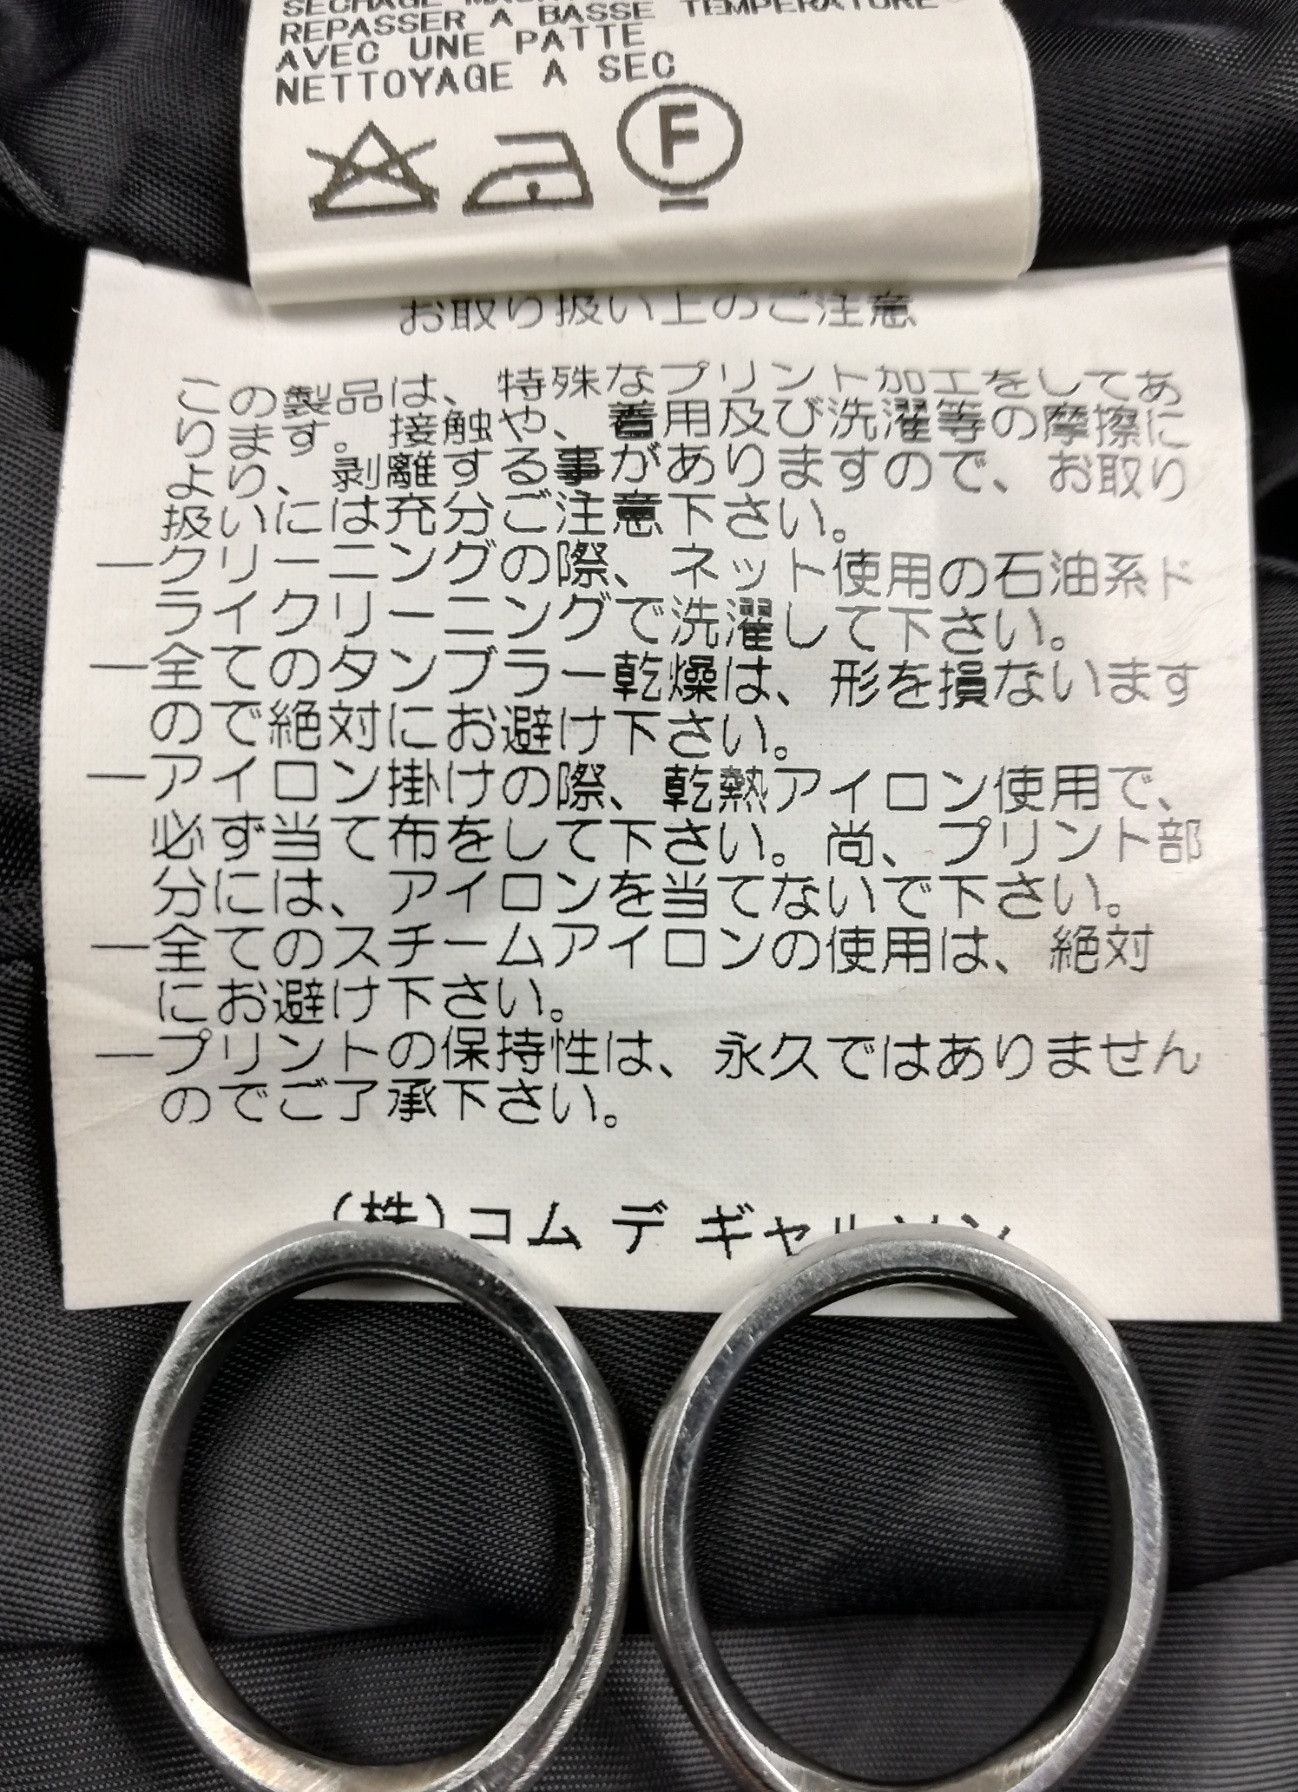 REPASSER A BASSE TEMPERATURE
AVEC UNE PATTE
NETTOYAGE A SEC
F
お取り扱い上のご注意
この製品は、特殊なプリント加工をしてあ
ります。接触や、着用及び洗濯等の摩擦に
より、剥離する事がありますので、お取り
扱いには充分ご注意下さい。
―クリーニングの際、ネット使用の石油系ド
ライクリーニングで洗濯して下さい。
―全てのタンブラー乾燥は、形を損ないます
ので絶対にお避け下さい。
―アイロン掛けの際、乾熱アイロン使用で、
必ず当て布をして下さい。尚、プリント部
分には、アイロンを当てないで下さい。
―全てのスチームアイロンの使用は、絶対
にお避け下さい。
―プリントの保持性は、永久ではありません
のでご了承下さい。
(株)コム デ ギャルソン